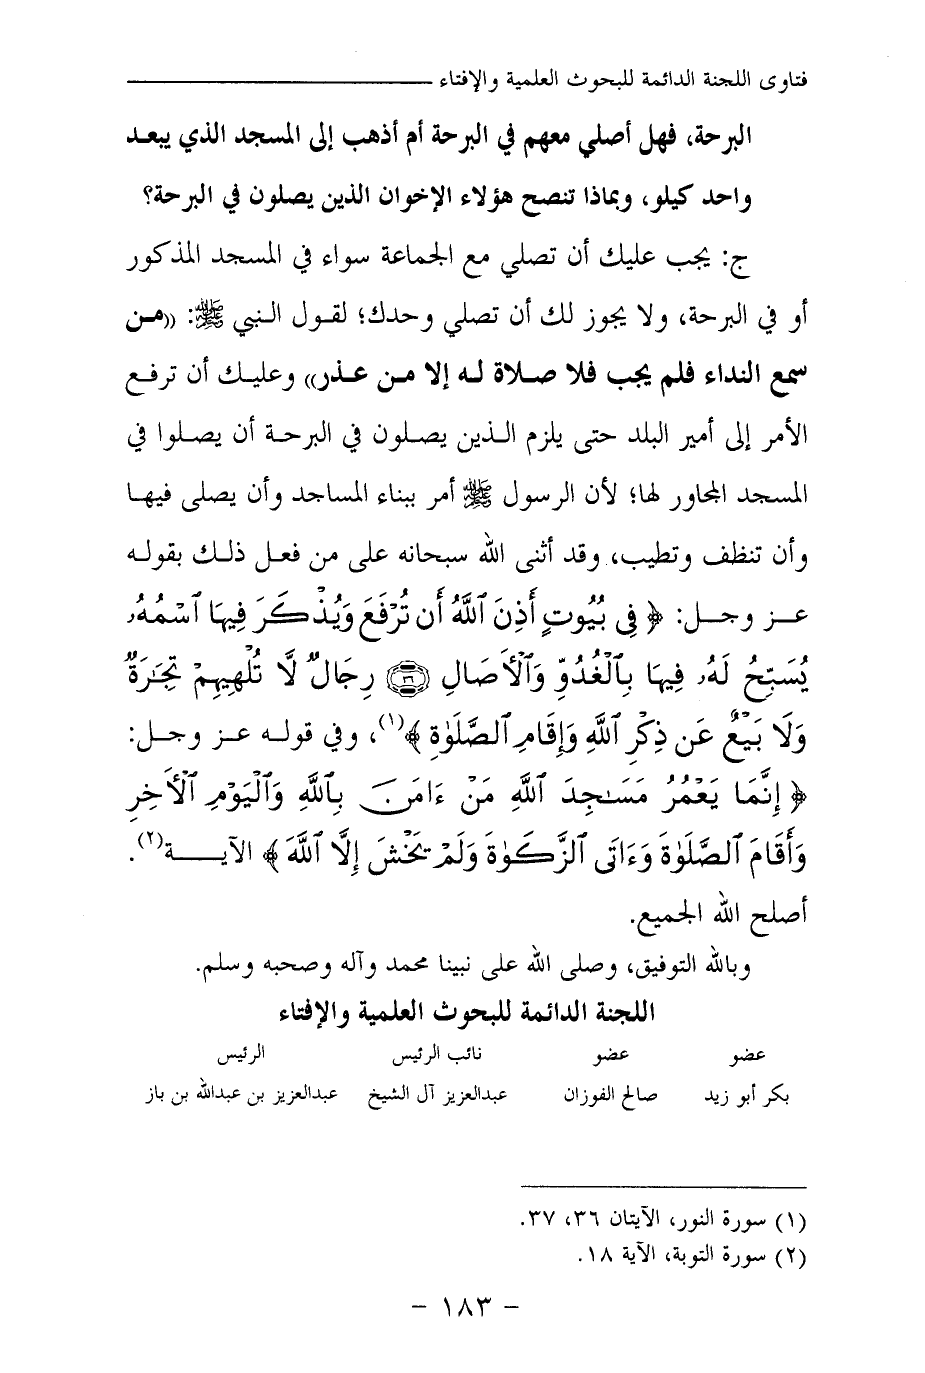 فتاوى اللجنة الدائمة للبحوث العلمية والإفتاء
البرحة، فهل أصلي معهم في البرحة أم أذهب إلى المسجد الذي يبعد
واحد كيلو، وبماذا تنصح هؤلاء الإخوان الذين يصلون في البرحة؟
ج: يجب عليك أن تصلي مع الجماعة سواء في المسجد المذكور
أو في البرحة، ولا يجوز لك أن تصلي وحدك؛ لقول النبي ﷺ: «من
سمع النداء فلم يجب فلا صلاة له إلا من عذر» وعليك أن ترفع
الأمر إلى أمير البلد حتى يلزم الذين يصلون في البرحة أن يصلوا في
المسجد المجاور لها؛ لأن الرسول ﷺ أمر ببناء المساجد وأن يصلى فيها
وأن تنظف وتطيب، وقد أثنى الله سبحانه على من فعل ذلك بقوله
عز وجل: ﴿ فِى بُيُوتٍ أَذِنَ ٱللَّهُ أَن تُرْفَعَ وَيُذْكَرَ فِيهَا ٱسْمُهُۥ
يُسَبِّحُ لَهُۥ فِيهَا بِٱلْغُدُوِّ وَٱلْأَصَالِ ٣٦ رِجَالٌ لَّا تُلْهِيهِمْ تِجَٰرَةٌ
وَلَا بَيْعٌ عَن ذِكْرِ ٱللَّهِ وَإِقَامِ ٱلصَّلَوٰةِ ﴾(١)، وفي قوله عز وجل:
﴿ إِنَّمَا يَعْمُرُ مَسَٰجِدَ ٱللَّهِ مَنْ ءَامَنَ بِٱللَّهِ وَٱلْيَوْمِ ٱلْأَخِرِ
وَأَقَامَ ٱلصَّلَوٰةَ وَءَاتَى ٱلزَّكَوٰةَ وَلَمْ يَخْشَ إِلَّا ٱللَّهَ ﴾ الآيـــة(٢).
أصلح الله الجميع.
وبالله التوفيق، وصلى الله على نبينا محمد وآله وصحبه وسلم.
اللجنة الدائمة للبحوث العلمية والإفتاء
عضو عضو نائب الرئيس الرئيس
بكر أبو زيد صالح الفوزان عبدالعزيز آل الشيخ عبدالعزيز بن عبدالله بن باز
(١) سورة النور، الآيتان ٣٦، ٣٧.
(٢) سورة التوبة، الآية ١٨.
- ١٨٣ -